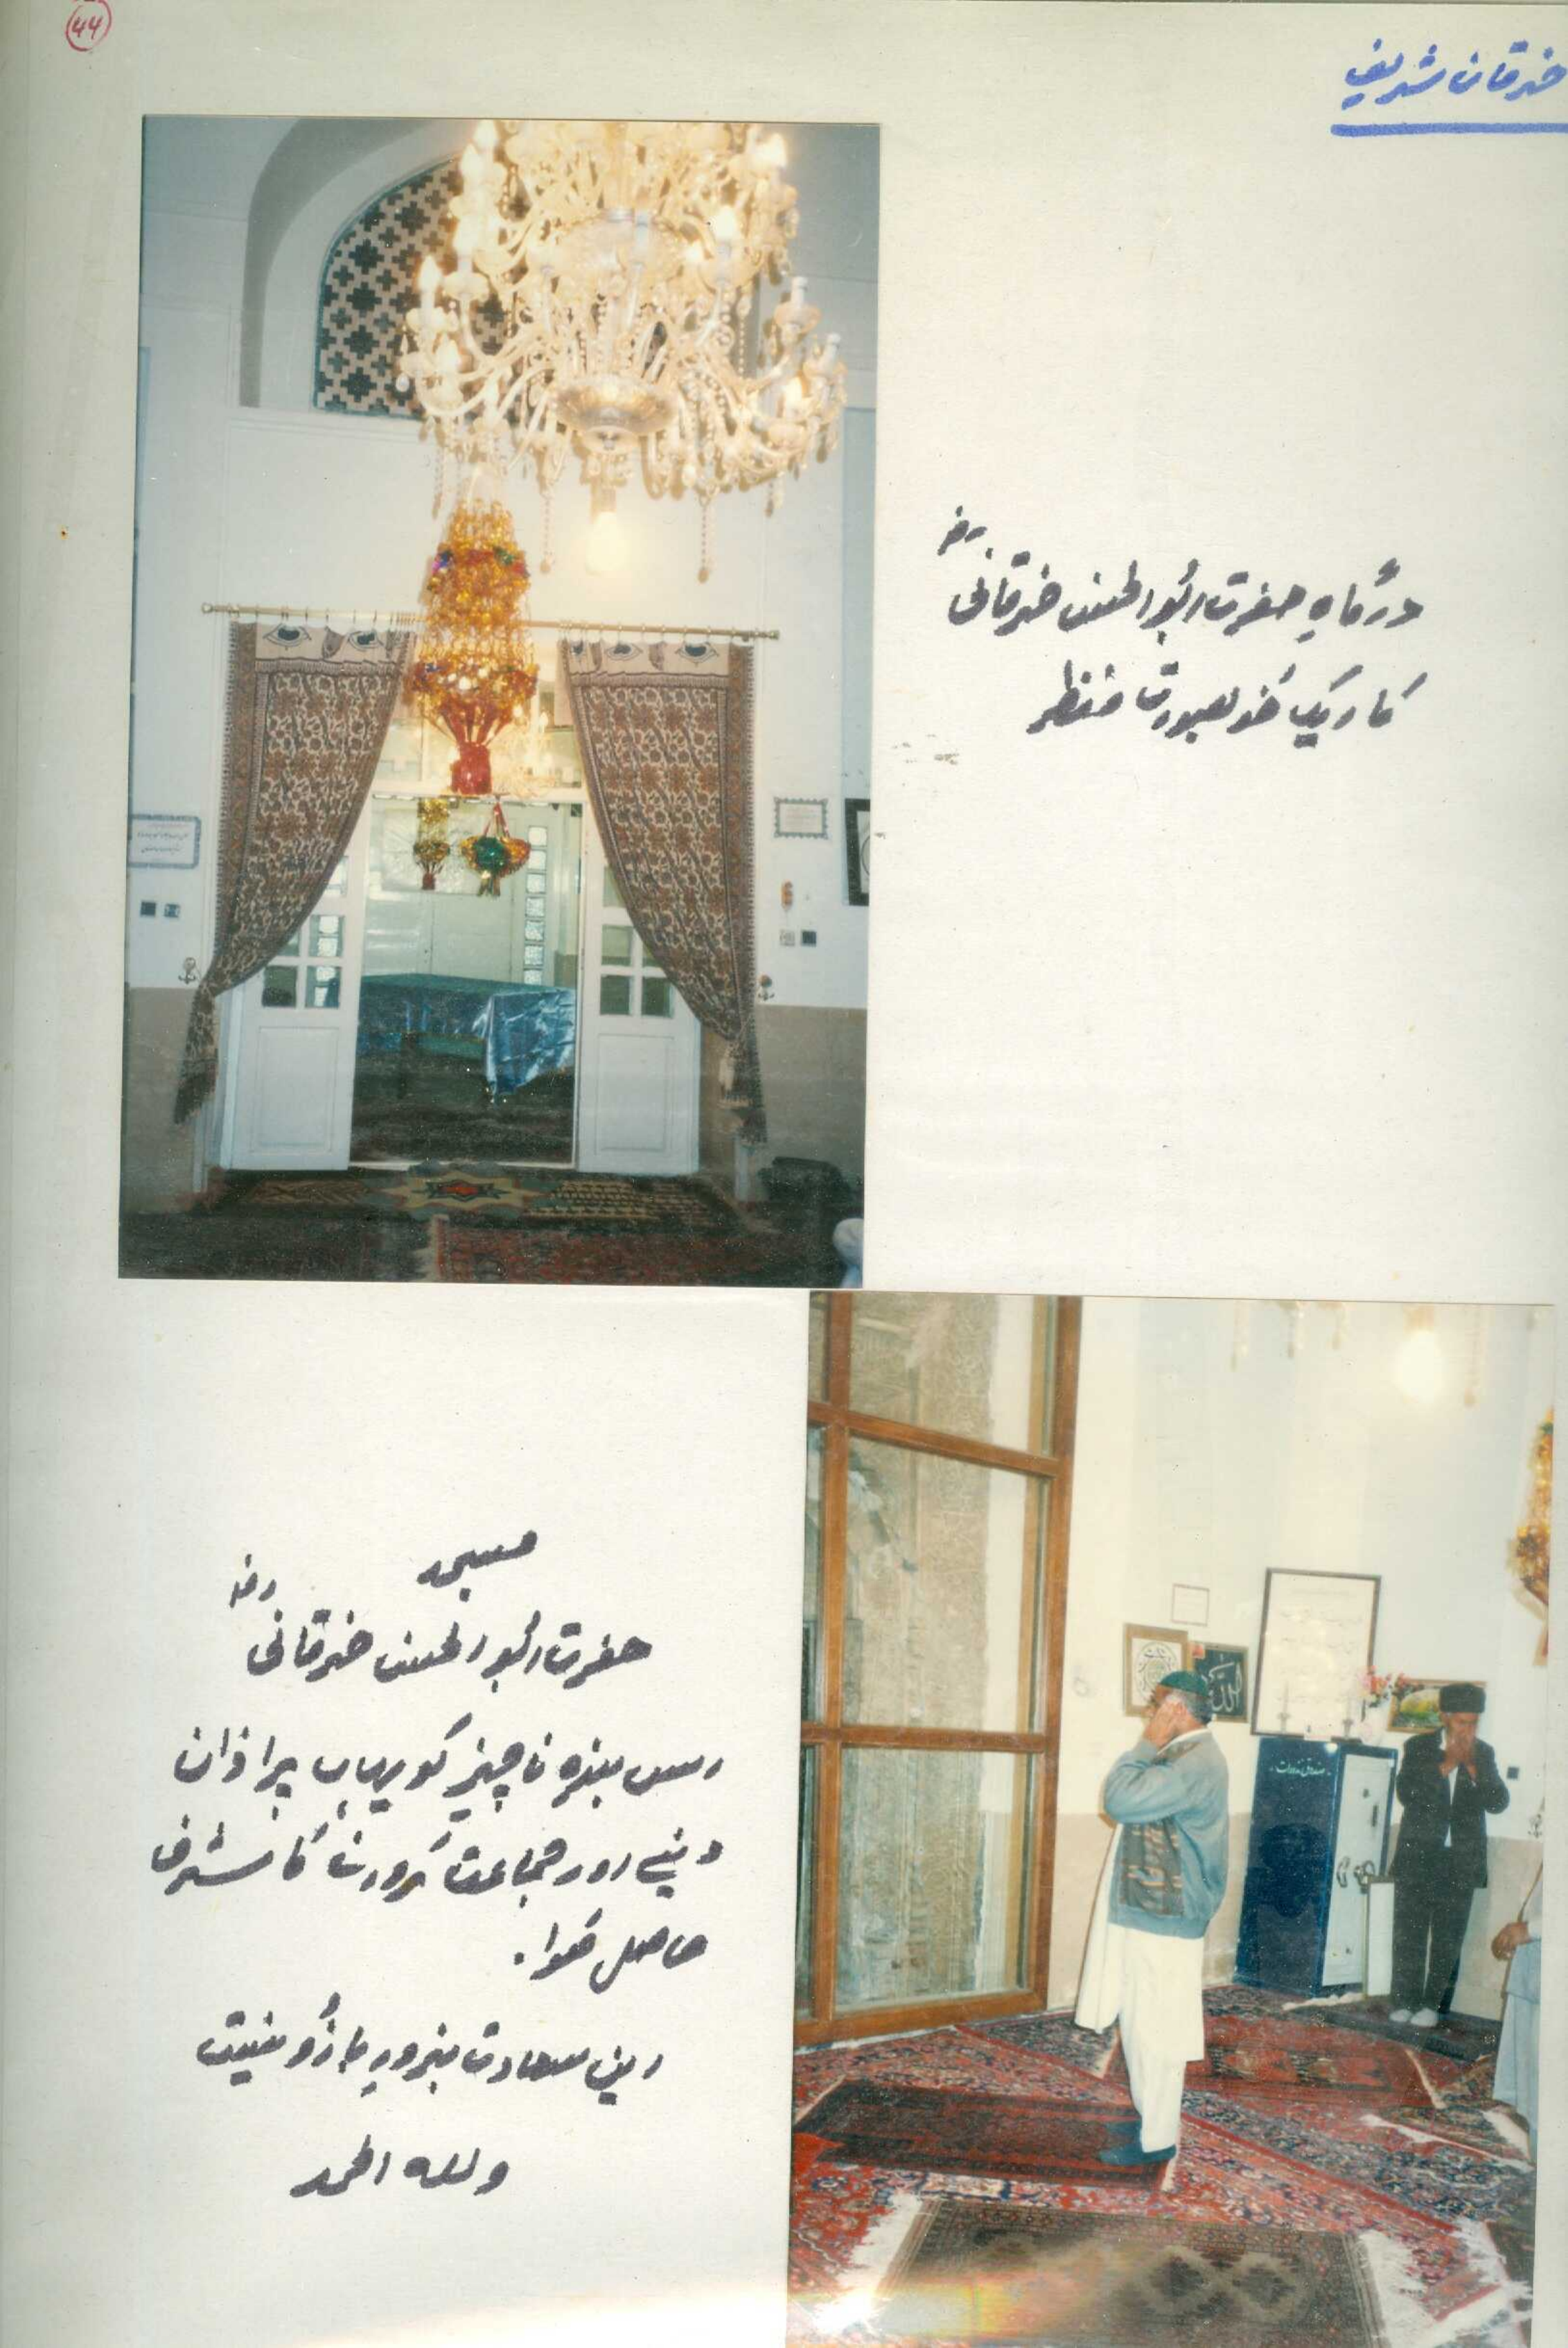 44
خرقان شریف
درگاہِ حضرت ابوالحسن خرقانی رض
کا ایک خوبصورت منظر
مسجد
حضرت ابوالحسن خرقانی رض
اس بندہ ناچیز کو یہاں پر اذان
دینے اور جماعت کروانے کا شرف
حاصل ہوا۔
این سعادت بزورِ بازُو نیست
وللہ الحمد
صندوق نذورات